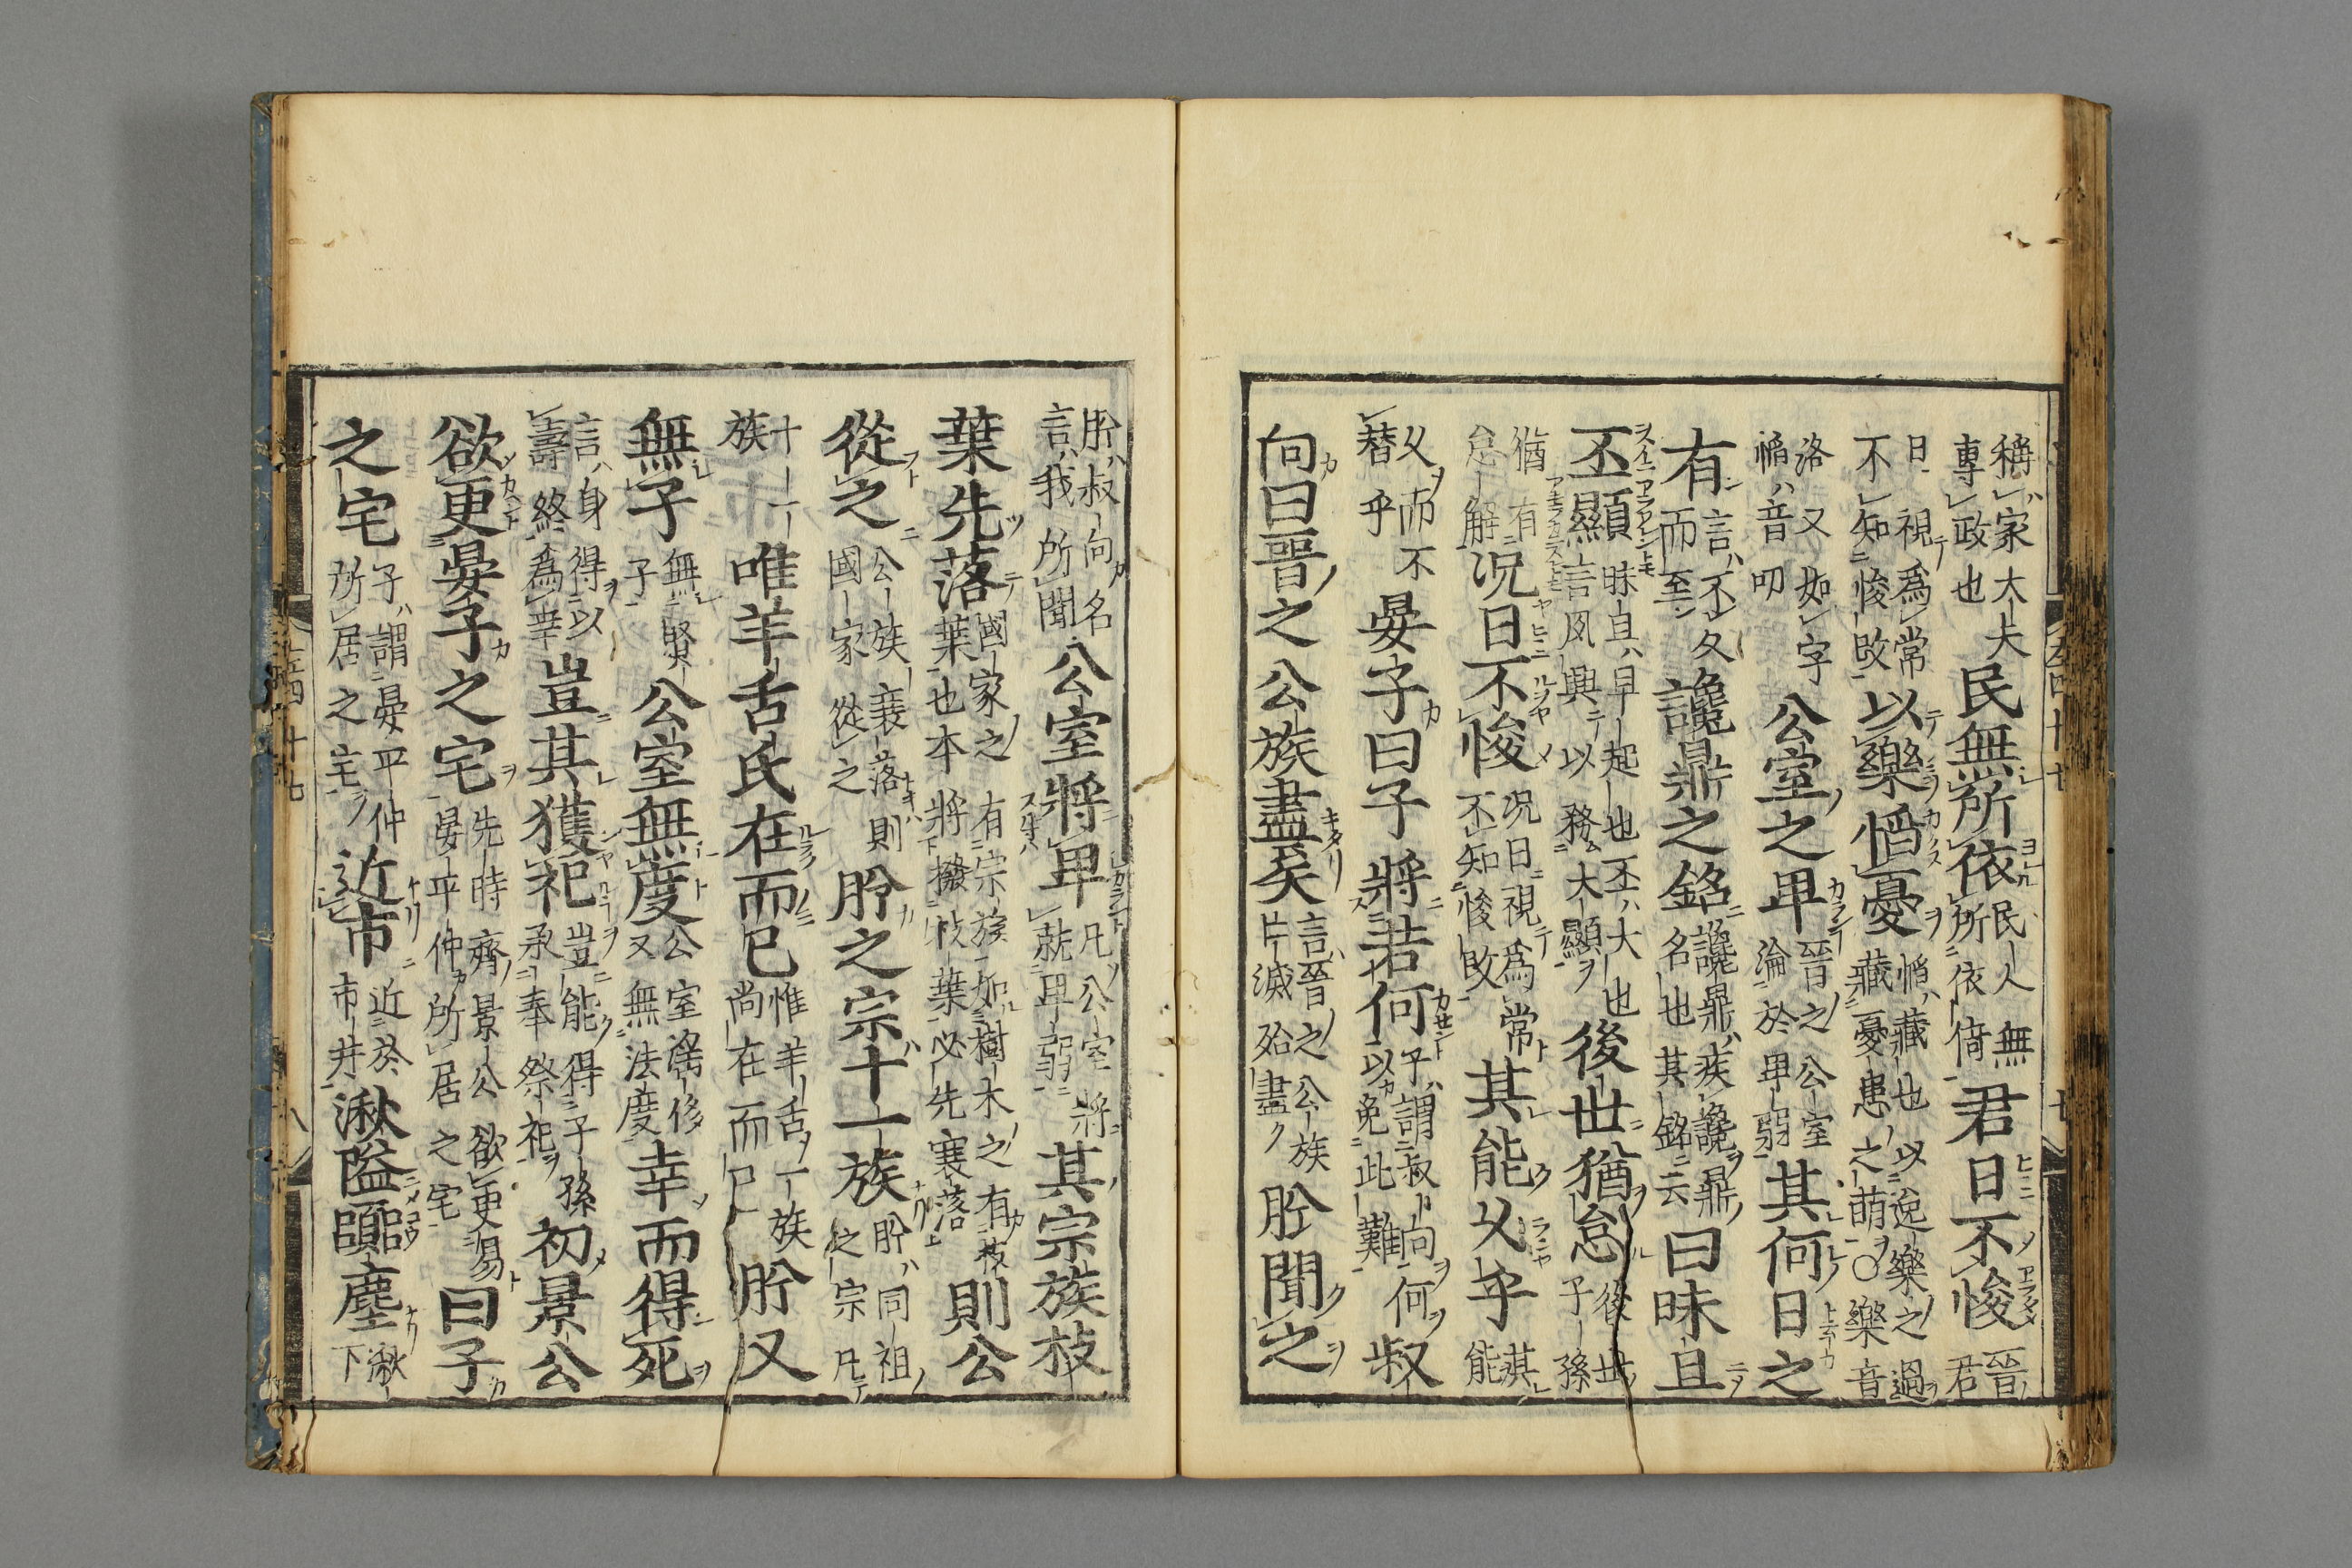 稱家大夫專政也民無所依民人無所依倚君日不悛晉君
日視爲常不知悛改以樂慆憂慆藏也以逸樂之過藏憂患之萌○樂音
洛又如字慆音叨公室之卑晉之公室淪於卑弱其何日之
有言不久而至讒鼎之銘讒鼎疾讒鼎名也其銘云曰昧旦
丕顯昧旦早起也丕大也言夙興以務大顯後世猶怠後世子孫
猶有怠解况日不悛况日視爲常不知悛改其能久乎其能
久而不替乎晏子曰子將若何子謂叔向何以免此難叔
向曰晉之公族盡矣言晉之公族滅殆盡肸聞之
肸叔向名言我所聞公室將卑凡公室將就卑弱其宗族枝
葉先落國家之有宗族如樹木之有枝葉也本將撥枝葉必先寒落則公
從之公族衰落則國家從之肸之宗十一族肸同祖之宗凡
十一族唯羊舌氏在而已惟羊舌一族尚在而已肸又
無子無賢子公室無度公室滛侈又無法度幸而得死
言身得以壽終爲幸豈其獲祀豈能得子孫承奉祭祀初景公
欲更晏子之宅先時齊景公欲更易晏平仲所居之宅曰子
之宅子謂晏平仲所居之宅近市近於市井湫隘囂塵湫下